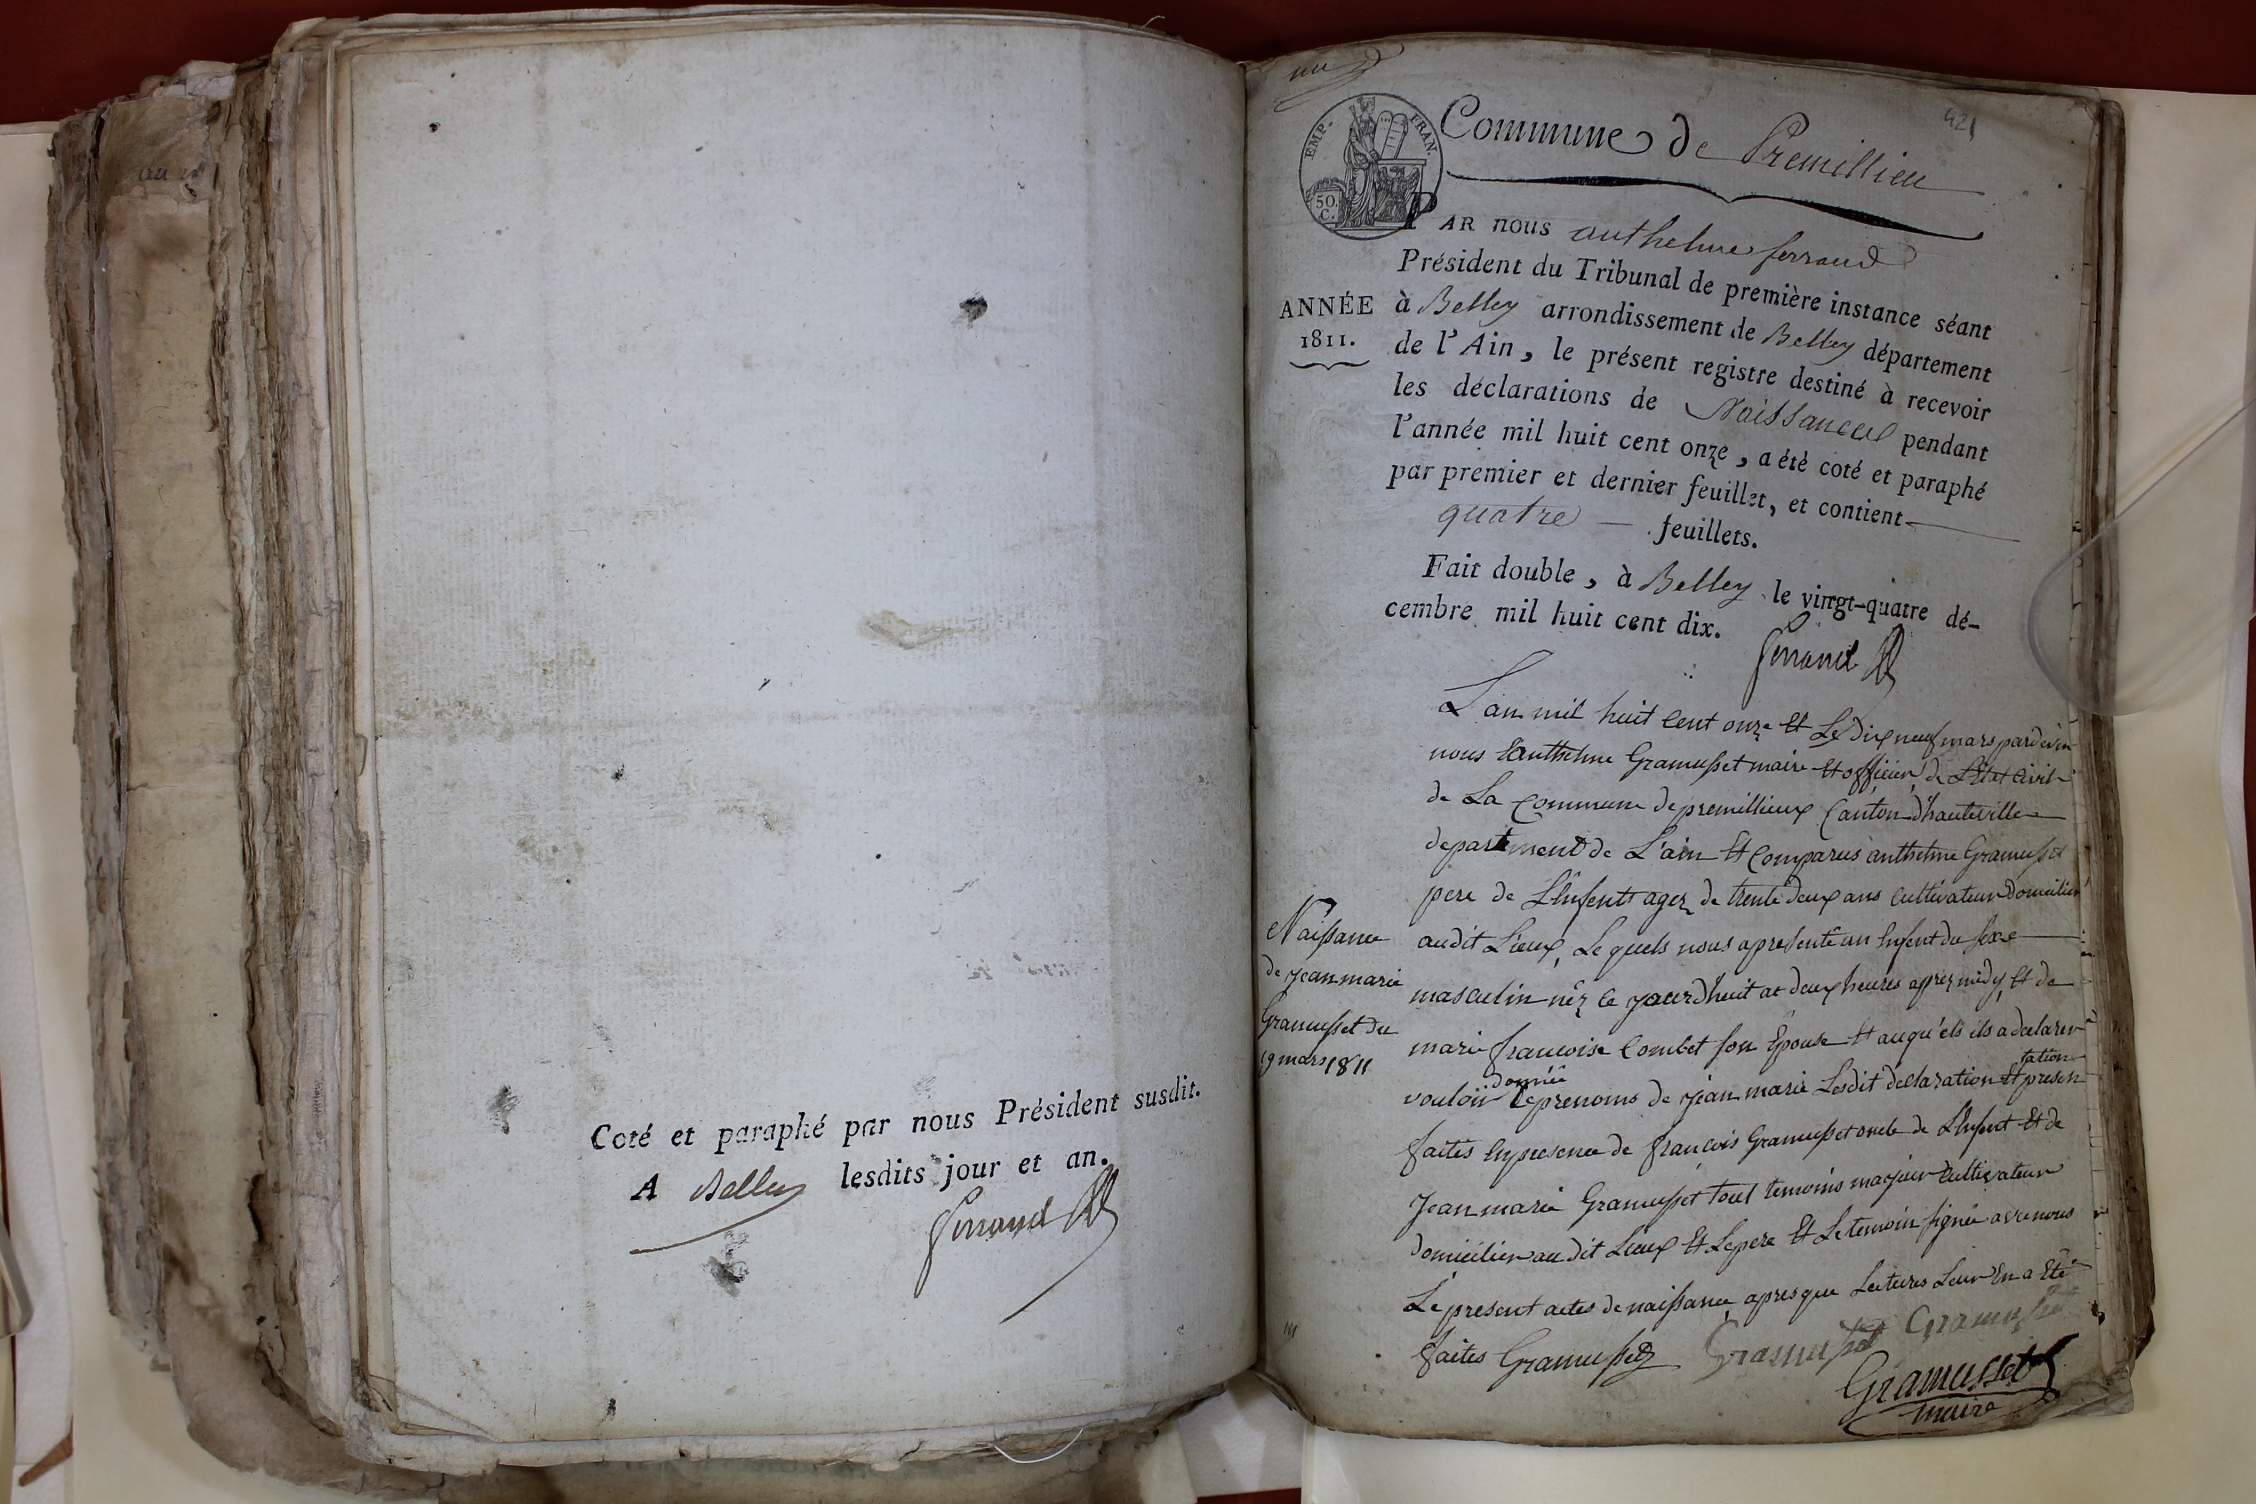 Coté et paraphé par nous Président susdit.
A Belley lesdits jour et an.
Ferrand
un
421
EMP. FRAN.
50. C.
Commune de Premillieu
PAR nous anthelme ferrand
Président du Tribunal de première instance séant
ANNÉE
1811.
à Belley arrondissement de Belley département
de l'Ain, le présent registre destiné à recevoir
les déclarations de Naissances pendant
l'année mil huit cent onze, a été coté et paraphé
par premier et dernier feuillet, et contient
quatre feuillets.
Fait double, à Belley le vingt-quatre dé-
cembre mil huit cent dix.
Ferrand
L'an mil huit Cent onze Et Le Dix neuf mars pardevin
nous anthelme Gramusset maire Et officier de L'Etat Civil
de La Commune de premillieux Canton d'hauteville
departement de L'ain Et Comparus anthelme Gramusset
pere de L'Enfent agez de trente deux ans Cultivateur Domicilier
audit Lieux, Le quels nous apresenté un Enfent du sexe
masculin néz Ce jourdhuit at deux heures aprez midy, Et de
marie francoise Combet son Epouse Et auqu'els ils a declarer
vouloir donnée Le prenoms de jean marie Lesdit declaration Et presen
tation
faites En presence de francois Gramusset oncle de L'Enfent Et de
Jean marie Gramusset tout temoins majeur Cultivateur
domicilier au dit Lieux Et Le pere Et Le temoin signée avenous
Le present actes de naissance apres que Lectures Leur En a Eté
faites Gramusset Gramusset Gramusset
Gramusset
maire
Naissance
de jean marie
Gramusset du
19 mars 1811